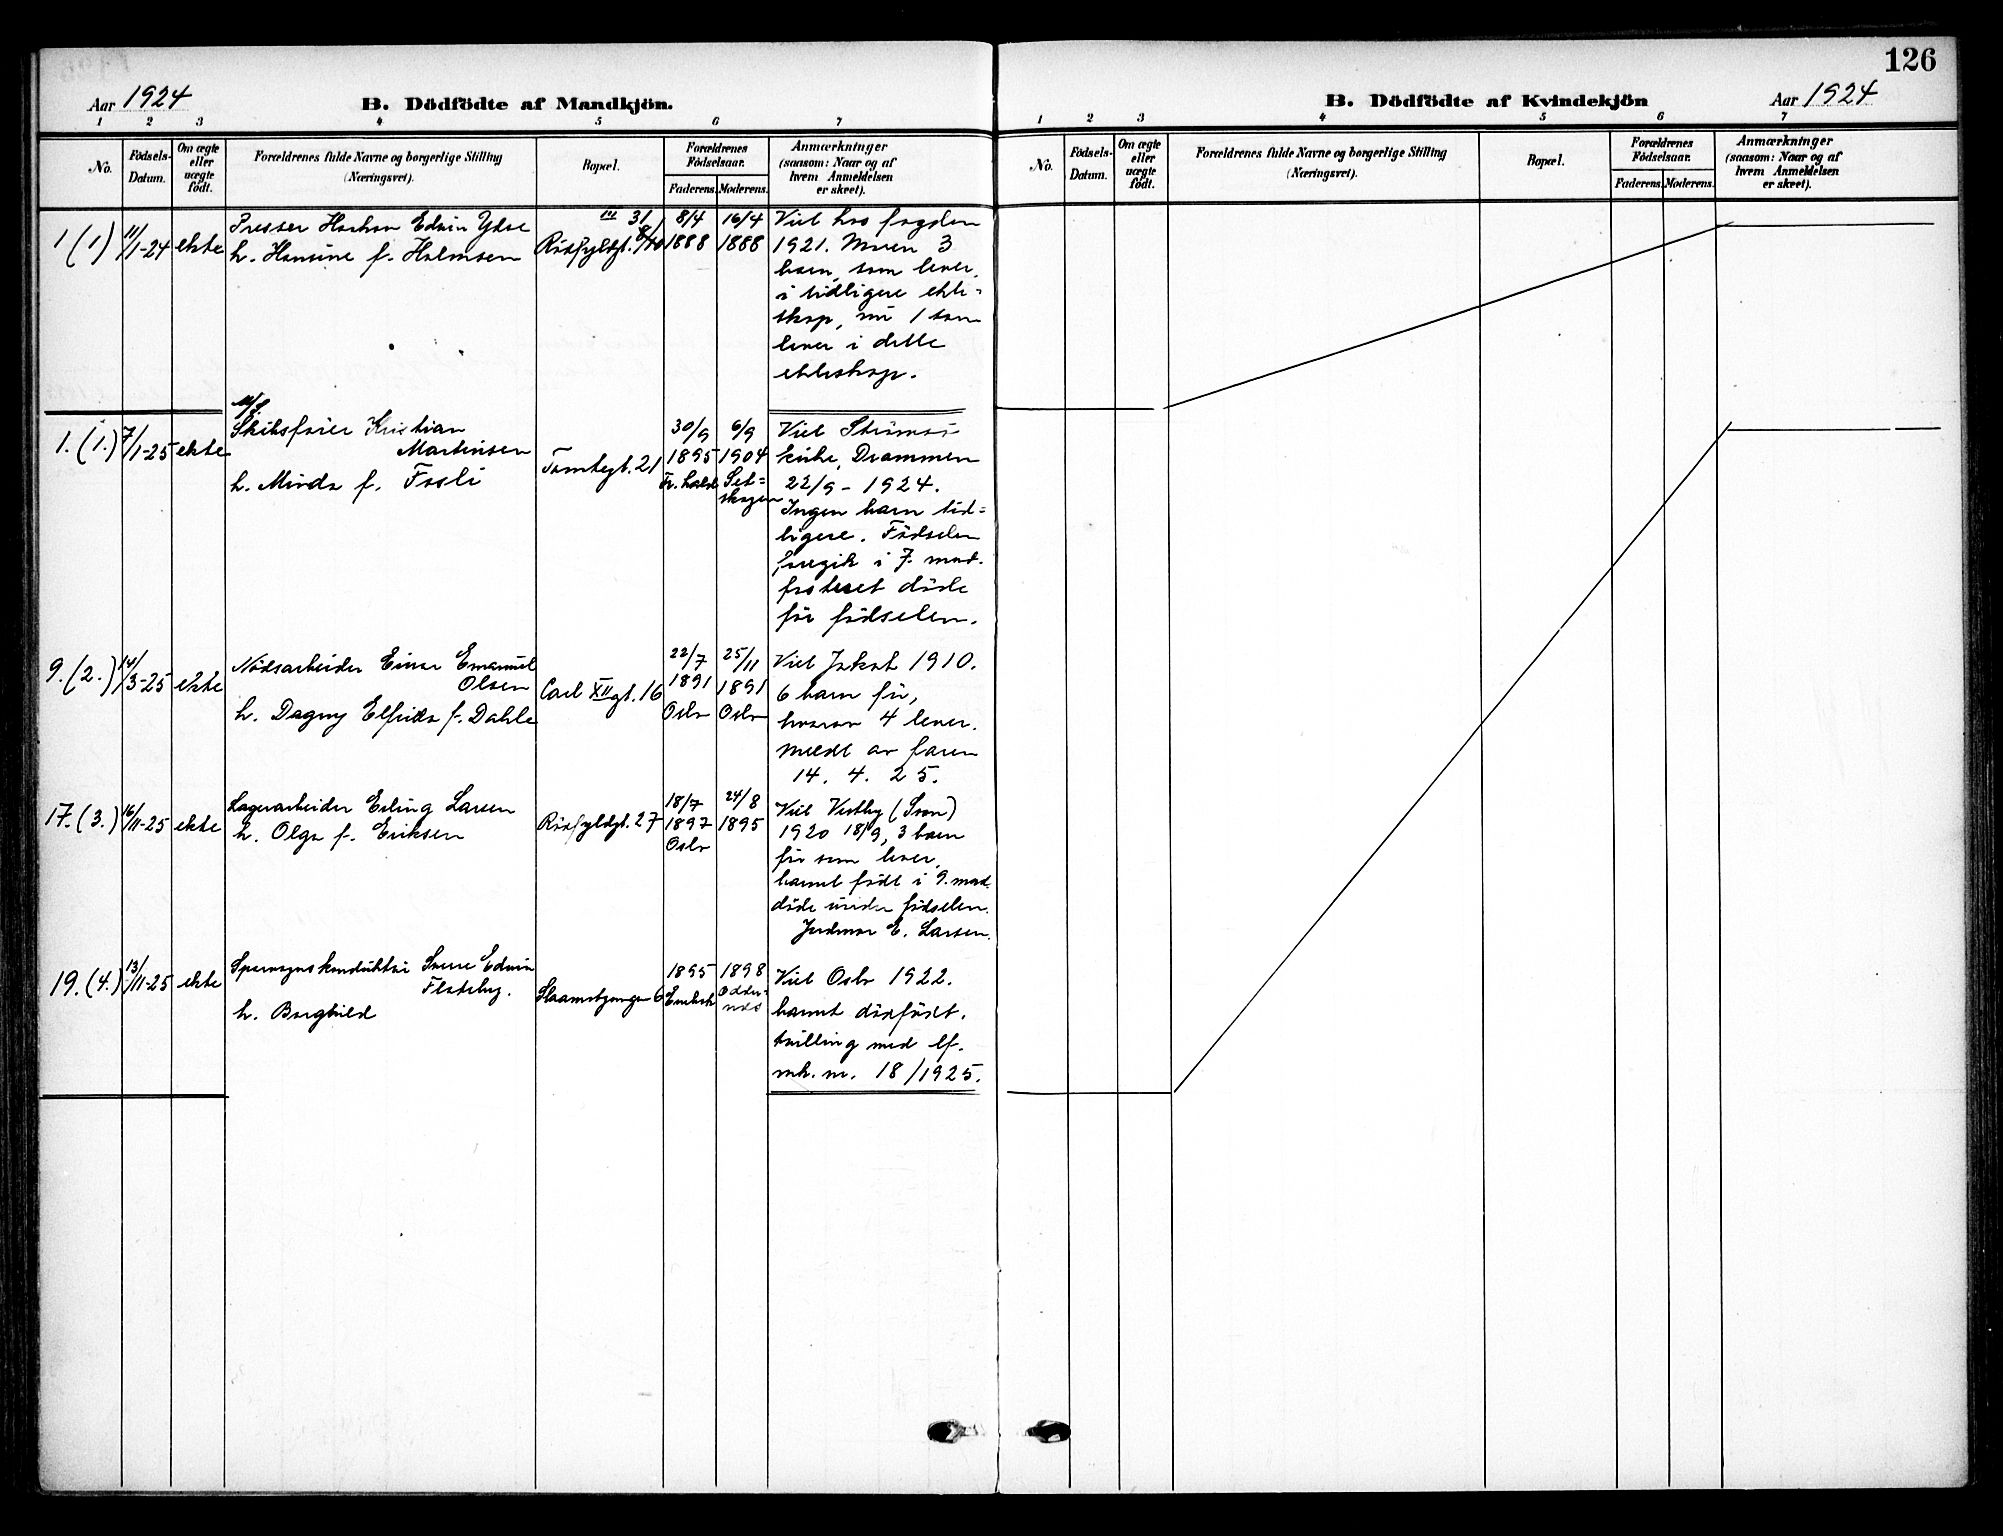 126
Aar 1924
B. Dödfödte af Mandkjön.
1 2 3 4 5 6 7
No.
Födsels-
Datum.
Om ægte
eller
uægte
födt.
Forældrenes fulde Navne og borgerlige Stilling
(Næringsvei).
Bopæl.
Forældrenes
Födselsaar.
Faderens. Moderens.
Anmærkninger
(saasom: Naar og af
hvem Anmeldelsen
er skeet).
1 (1) 11/1-24 ekte
Presser Haakon Edvin
h. Hansine f. Halmsen
III 31
8/4 1888
16/4 1888
Viet hos fogden
1921. Moren 3
barn, som lever,
i tidligere ekte-
skap, nu 1 som
lever i dette
ekteskap.
1. (1.) 7/1-25 ekte
Skibsfører Kristian
Martinsen
h. Minda f. Fosli
Tomtegt. 21
30/9 1895
Fr. hald
6/9 1904
Set-
skogen
Viet Strømsø
kirke, Drammen
22/9 - 1924.
Ingen barn tid-
ligere. Födselen
foregik i 7. mnd.
fosteret döde
för födselen.
9. (2.) 14/3-25 ekte
Nödsarbeider Einar Emanuel
Olsen
h. Dagny Elfrida f. Dahle
Carl XII gt. 16
22/7 1891 Oslo
25/11 1891 Oslo
Viet Jakob 1910.
6 barn för,
hvorav 4 lever.
meldt av faren
14. 4. 25.
17. (3.) 16/11-25 ekte
Lagerarbeider Erling Larsen
h. Olga f. Eriksen
27
18/7 1897 Oslo
24/8 1895
Viet Vestby (Svon)
1920 18/9, 3 barn
för som lever,
barnet födt i 9. mnd.
döde under födselen.
Jordmor E. Larsen.
19. (4.) 13/11-25 ekte
Sporvognskonduktör Sverre Edvin
Flateby.
h. Borghild
6
1895
Enebak
1898
Odder-
nes
Viet Oslo 1922.
barnet dödfödt.
tvilling med lf.
mk. nr. 18/1925.
Aar 1924
B. Dödfödte af Kvindekjön
1 2 3 4 5 6 7
No.
Födsels-
Datum.
Om ægte
eller
uægte
födt.
Forældrenes fulde Navne og borgerlige Stilling
(Næringsvei).
Bopæl.
Forældrenes
Födselsaar.
Faderens. Moderens.
Anmærkninger
(saasom: Naar og af
hvem Anmeldelsen
er skeet).